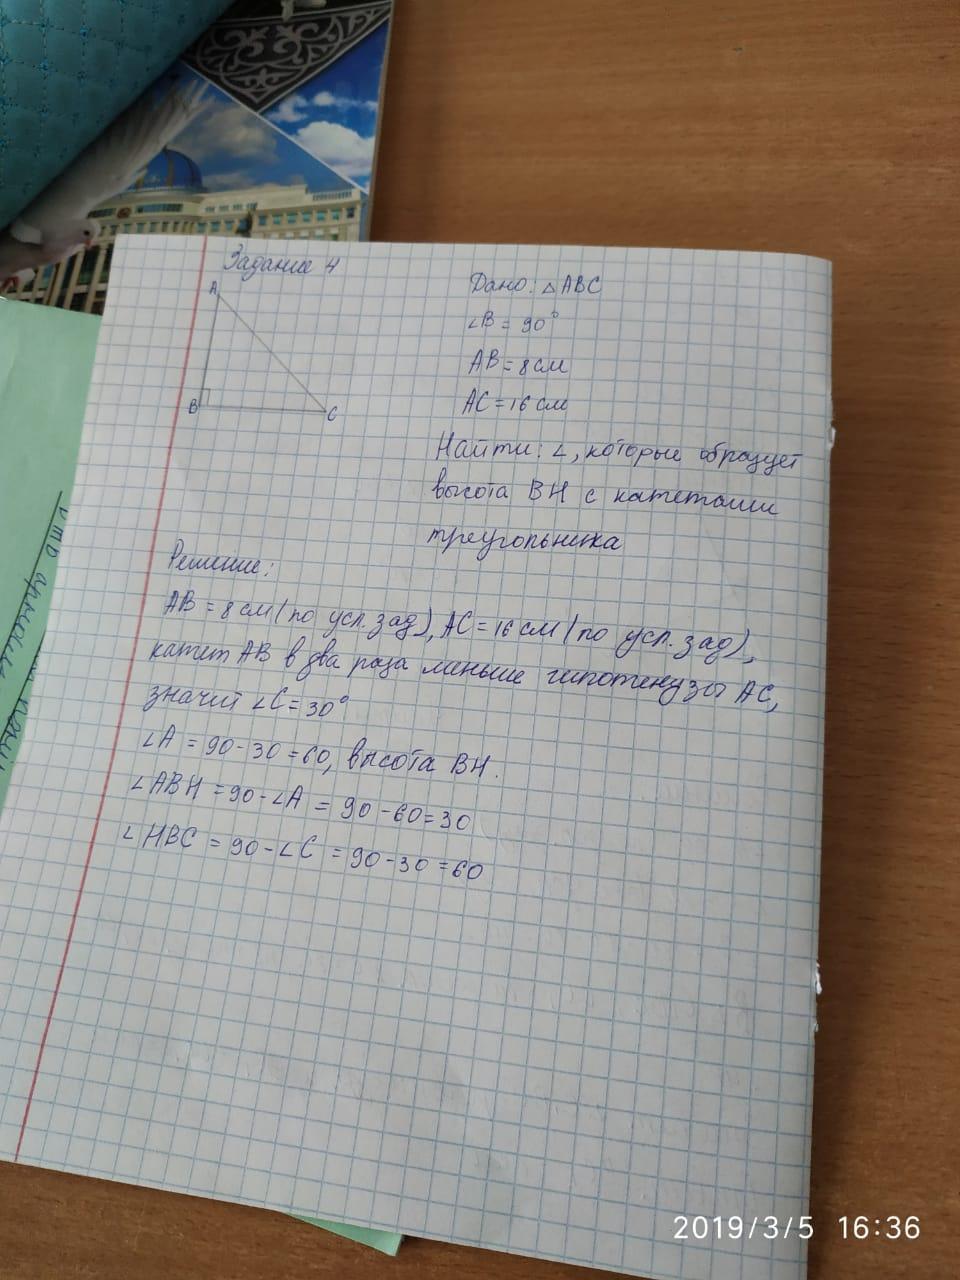 Задание 4
A
B
C
Дано: △ABC
∠B = 90°
AB = 8 см
AC = 16 см
Найти: ∠, которые образует
высота BH с катетами
треугольника
Решение:
AB = 8 см (по усл. зад), AC = 16 см (по усл. зад),
катет AB в два раза меньше гипотенузы AC,
значит ∠C = 30°
∠A = 90 - 30 = 60, высота BH.
∠ABH = 90 - ∠A = 90 - 60 = 30
∠HBC = 90 - ∠C = 90 - 30 = 60
2019/3/5 16:36